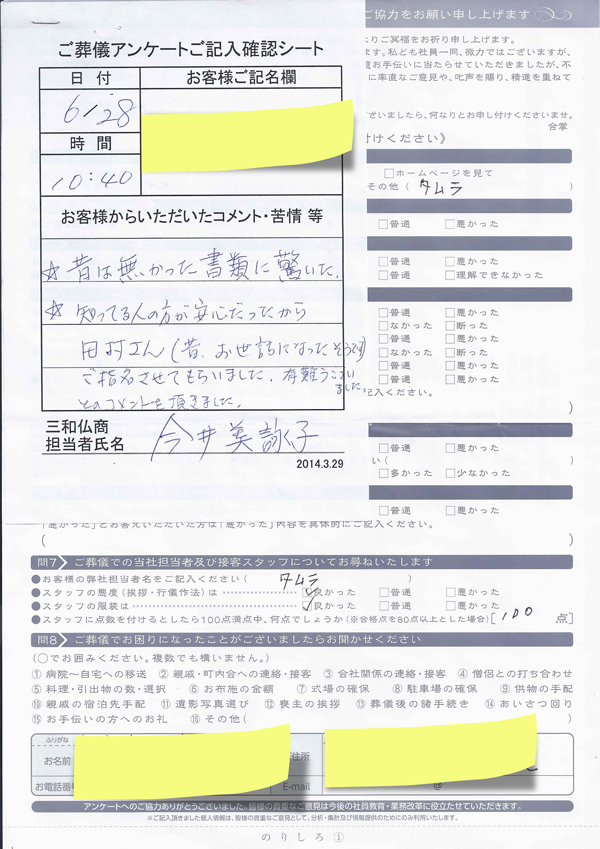 ご協力をお願い申し上げます
ご葬儀アンケートご記入確認シート
日付
お客様ご記名欄
6/28
時間
10:40
お客様からいただいたコメント・苦情 等
☆昔は無かった書類に驚いた。
☆知ってる人の方が安心だったから
田村さん(昔、お世話になったそうです)
ご指名させてもらいました。有難うございました。
とのコメントを頂きました。
三和仏商
担当者氏名
今井美詠子
2014.3.29
りご冥福をお祈り申し上げます。
ます。私ども社員一同、微力ではございますが、
お手伝いに当たらせていただきましたが、不
に率直なご意見や、叱声を賜り、精進を重ねて
ございましたら、何なりとお申し付けくださいませ。
合掌
付けください》
□ホームページを見て
その他( タムラ
□普通 □悪かった
□普通 □悪かった
□普通 □理解できなかった
□普通 □悪かった
□なかった □断った
□普通 □悪かった
□なかった □断った
□普通 □悪かった
□普通 □悪かった
記入ください。
)
□普通 □悪かった
い( )
□多かった □少なかった
□普通 □悪かった
「悪かった」とお答えいただいた方は「悪かった」内容を具体的にご記入ください。
( )
問7 ご葬儀での当社担当者及び接客スタッフについてお尋ねいたします
●お客様の弊社担当者名をご記入ください( タムラ )
●スタッフの態度(挨拶・行儀作法)は ☑良かった □普通 □悪かった
●スタッフの服装は ☑良かった □普通 □悪かった
●スタッフに点数を付けるとしたら100点満点中、何点でしょうか(※合格点を80点以上とした場合)[ 100 点]
問8 ご葬儀でお困りになったことがございましたらお聞かせください
(○でお囲みください。複数でも構いません。)
①病院～自宅への移送 ②親戚・町内会への連絡・接客 ③会社関係の連絡・接客 ④僧侶との打ち合わせ
⑤料理・引出物の数・選択 ⑥お布施の金額 ⑦式場の確保 ⑧駐車場の確保 ⑨供物の手配
⑩親戚の宿泊先手配 ⑪遺影写真選び ⑫喪主の挨拶 ⑬葬儀後の諸手続き ⑭あいさつ回り
⑮お手伝いの方へのお礼 ⑯その他( )
ふりがな
お名前
ご住所
お電話番号
E-mail
@
アンケートへのご協力ありがとうございました。皆様の貴重なご意見は今後の社員教育・業務改革に役立たせていただきます。
※ご記入頂きました個人情報は、皆様の貴重なご意見として、分析・集計及び情報提供のためにのみ利用いたします。
のりしろ①